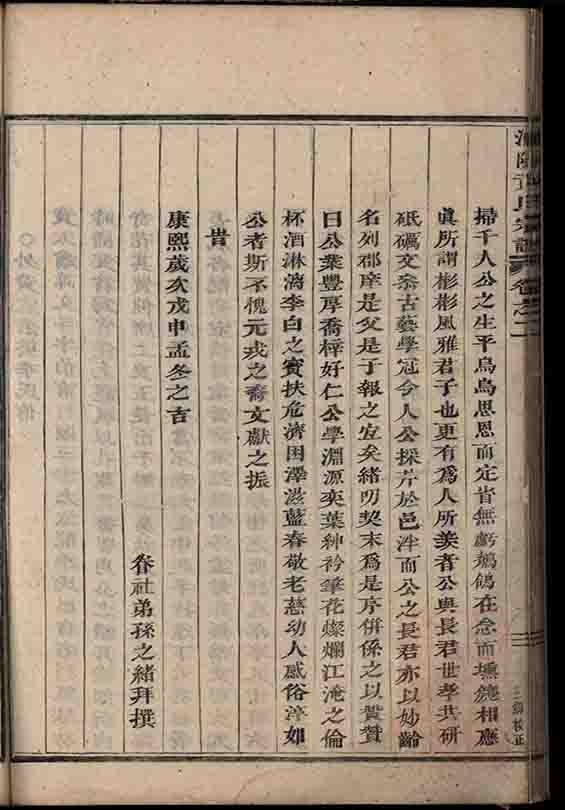 氏宗譜 卷之二
三錦校正
掃千人公之生平烏鳥思恩而定省無虧鶺鴒在念而壎篪相應
真所謂彬彬風雅君子也更有為人所羨者公與長君世孝共研
砥礪文叅古藝學冠今人公採芹於邑泮而公之長君亦以妙齡
名列郡庠是父是子報之宜矣緒叨契末為是芹併係之以贊贊
曰公業豐厚喬梓好仁公學淵源奕葉紳衿筆花燦爛江淹之倫
杯酒淋漓李白之賓扶危濟困澤滋藍春敬老慈幼人感俗淳如
公者斯不愧元戎之裔文獻之振
旹
康熙歲次戊申孟冬之吉
眷社弟孫之緒拜撰